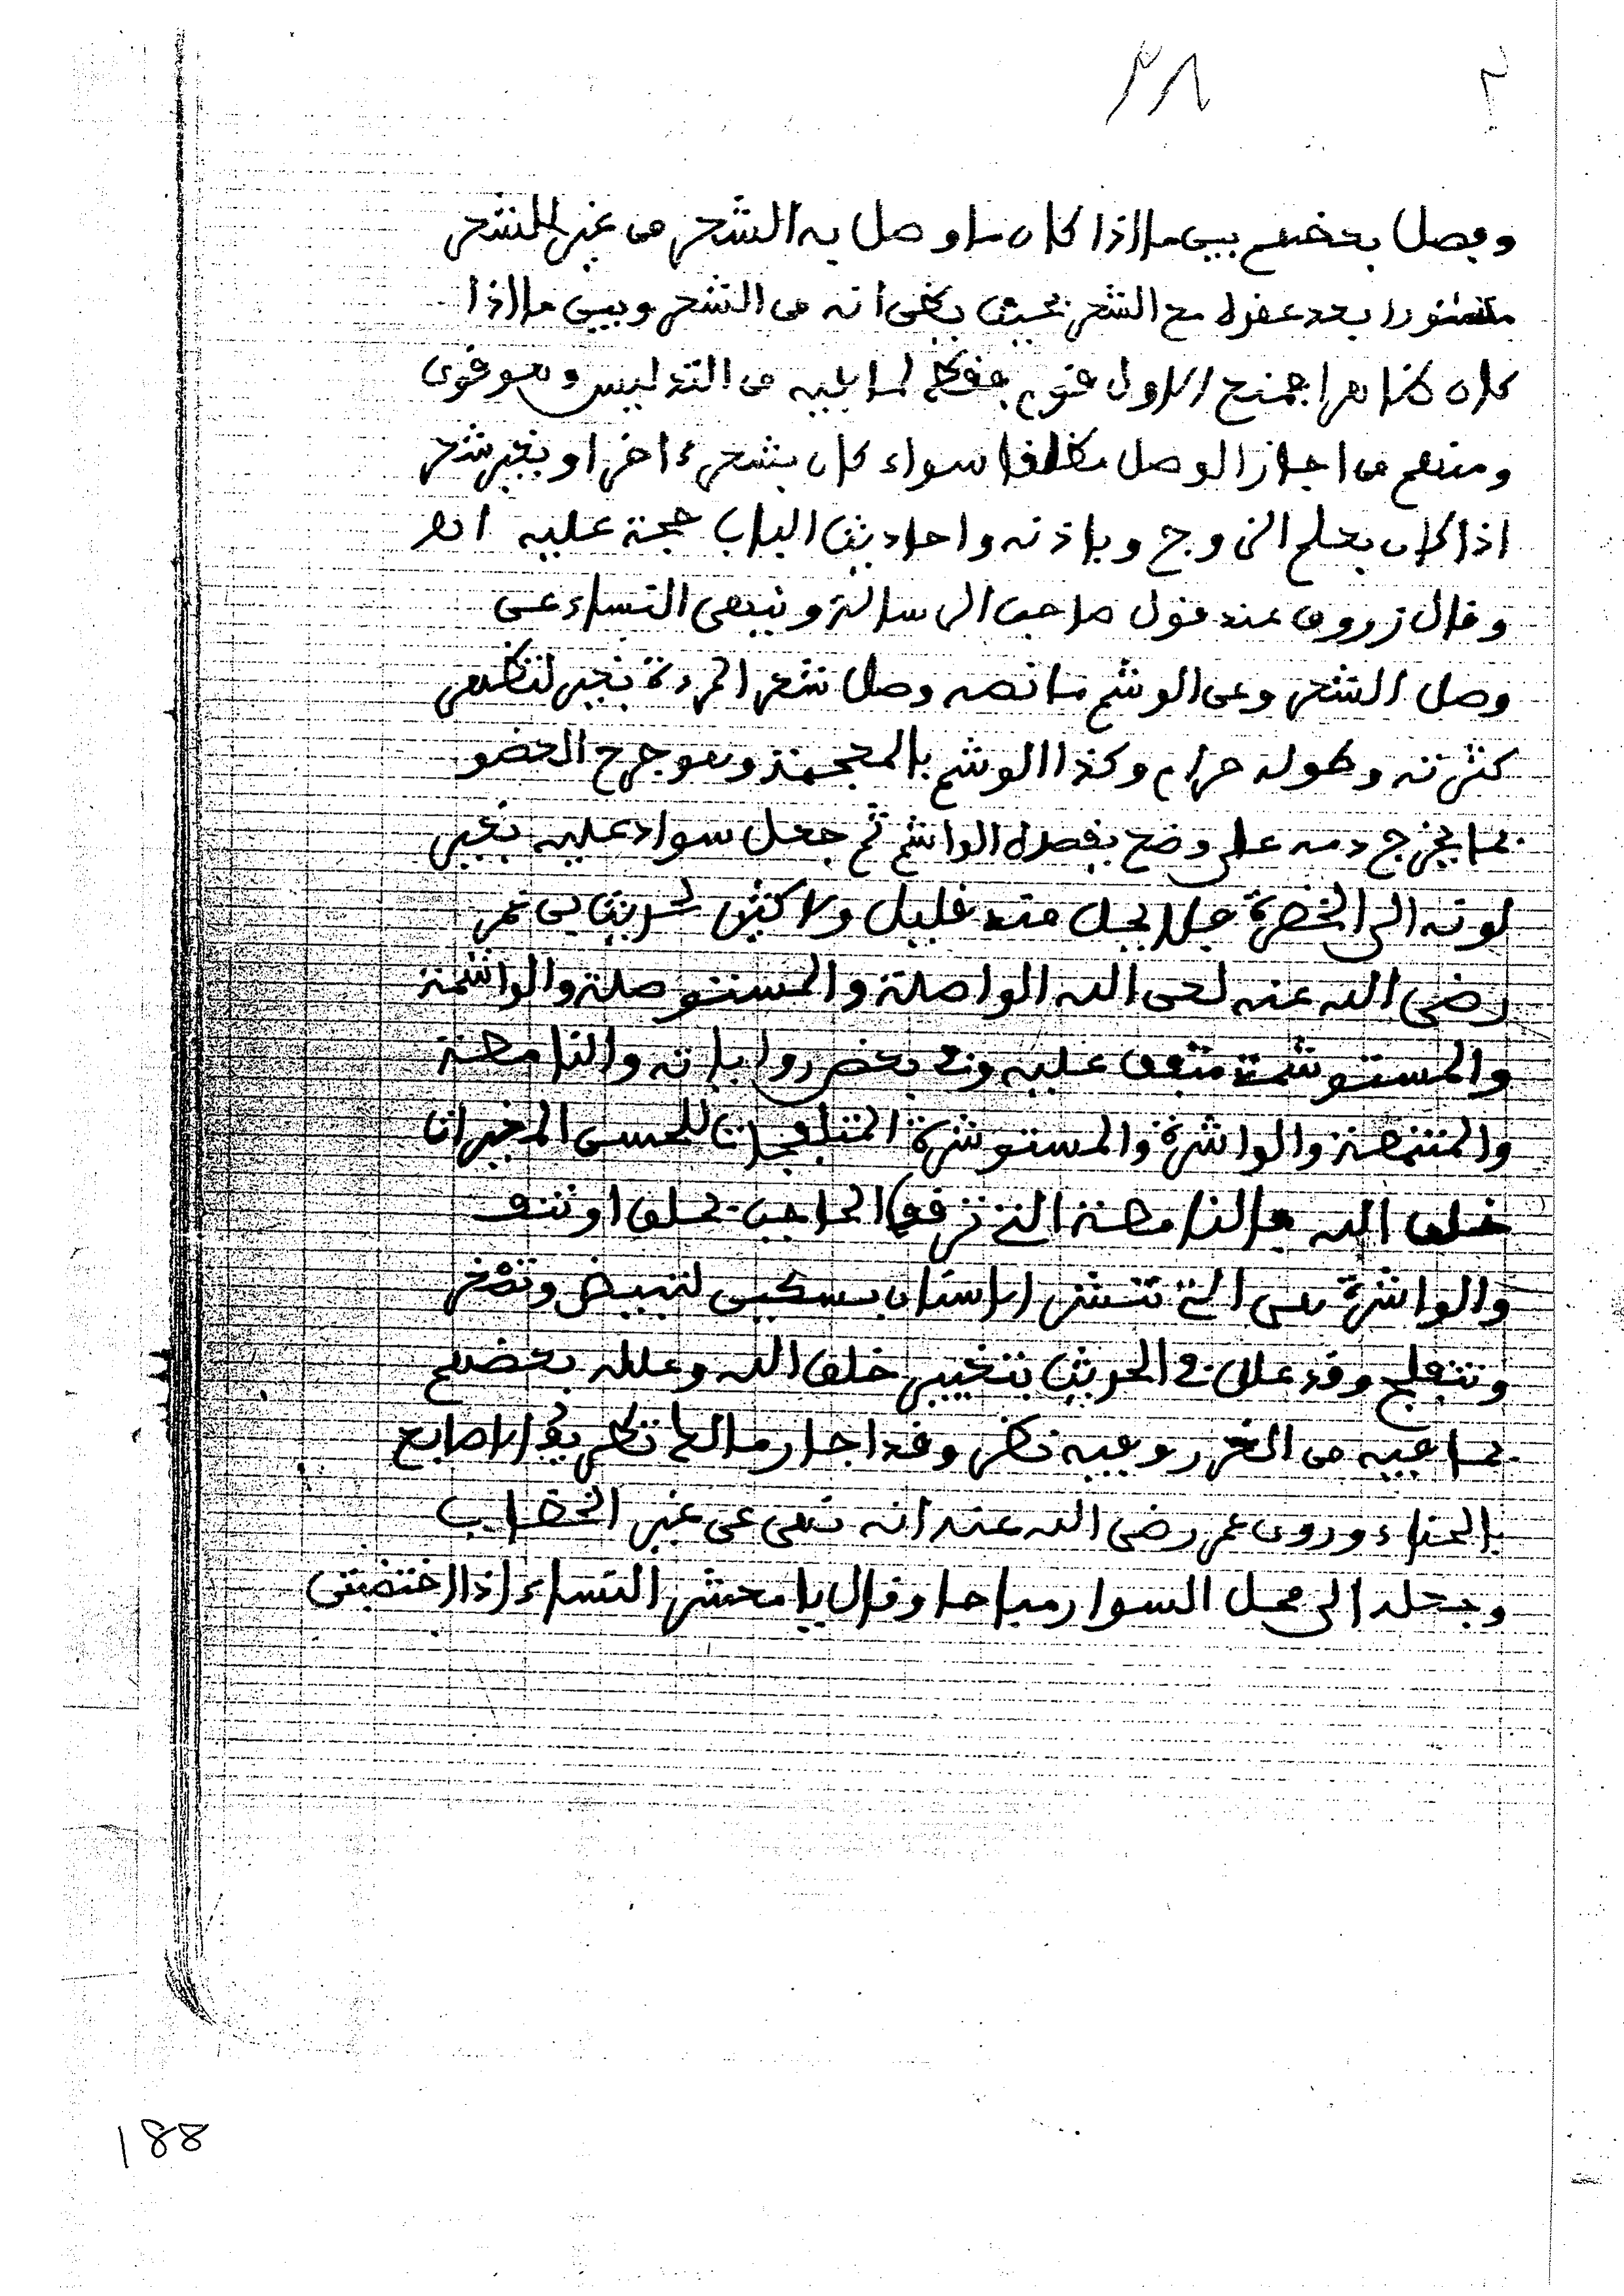 ٣٨
وفصل بعضهم بين ما إذا كان ما وصل به الشعر من غير الشعر
مستورا بعد عقده مع الشعر بحيث يظن انه من الشعر وبين ما اذا
كان ظاهرا فمنع الاول قوم فقط لما فيه من التدليس وهو قوي
ومنهم من اجاز الوصل مطلقا سواء كان بشعر ءاخر او بغير شعر
اذا كان بعلم الزوج وباذنه واحاديث الباب حجة عليه اه
وقال زروق عند قول صاحب الرسالة وينهى النساء عن
وصل الشعر وعن الوشم ما نصه وصل شعر المرءة بغير لتظهر
كثرته وطوله حرام وكذا الوشم بالمعجمة وهو جرح العضو
بما يخرج دمه على وضع يقصده الواشم ثم جعل سواد عليه بغير
لونه الى الخضرة فلا يحل منه قليل ولا كثير لحديث بن عمر
رضي الله عنه لعن الله الواصلة والمستوصلة والواشمة
والمستوشمة متفق عليه وفي بعض رواياته والنامصة
والمتنمصة والواشرة والمستوشرة المتفلجات للحسن المغيرات
خلق الله فالنامصة التي ترقق الحاجب بحلق او نتف
والواشرة هي التي تنشر الاسنان بسكين لتبيض وتصغر
وتتفلج وقد علل في الحديث بتغيير خلق الله وعلله بعضهم
بما فيه من الغرر وفيه نظر وقد اجاز مالك تطريف الاصابع
بالحناء وروي عمر رضي الله عنه انه نهى عن غير الخضاب
وجعله الى محل السوار مباحا وقال يا معشر النساء إذا اختضبتن
188